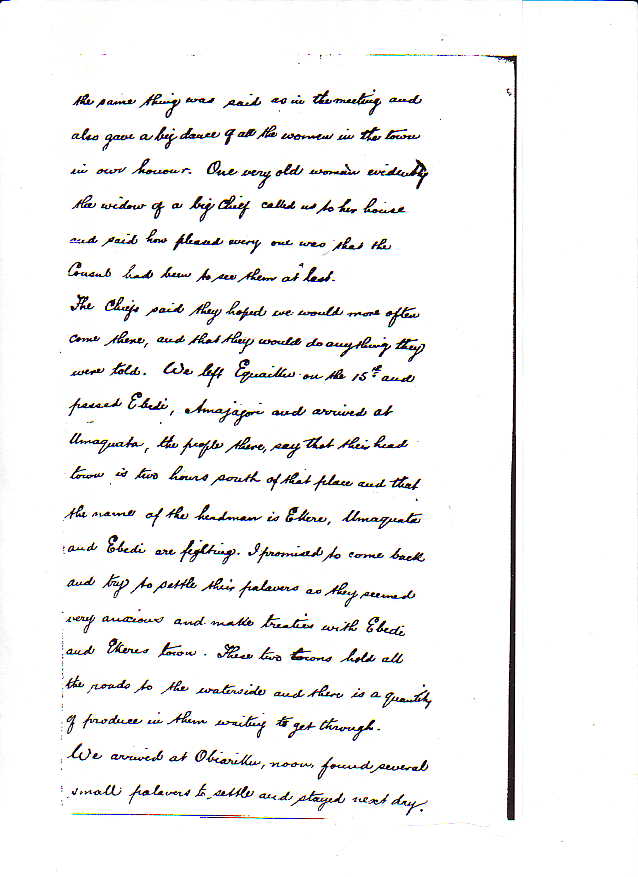 the same thing was said as in the meeting and
also gave a big dance of all the women in the town
in our honour. One very old woman evidently
the widow of a big Chief called us to her house
and said how pleased every one was that the
Consul had been to see them at last.
The Chiefs said they hoped we would more often
come there, and that they would do anything they
were told. We left Equaillu on the 15th and
passed Ebedi, Amajajori and arrived at
Umaquata, the people there, say that their head
town is two hours south of that place and that
the name of the headman is Ekere, Umaquata
and Ebedi are fighting. I promised to come back
and try to settle their palavers as they seemed
very anxious and make treaties with Ebedi
and Ekeres town. These two towns hold all
the roads to the waterside and there is a quantity
of produce in them waiting to get through.
We arrived at Obiarillu, noon, found several
small palavers to settle and stayed next day.